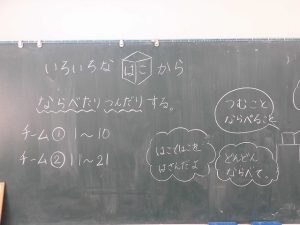 いろいろな はこ から
ならべたり つんだり する。
チーム① 1～10
チーム② 11～21
つむこと
ならべること
はこではこを
はさんだよ
どんどん
ならべて、